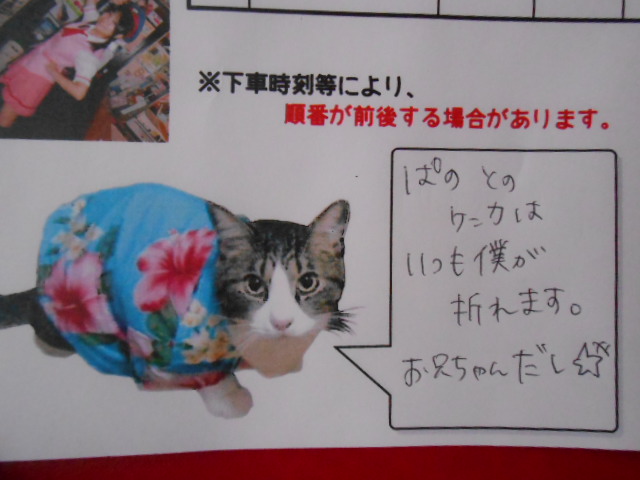 ※下車時刻等により、
順番が前後する場合があります。
ぱの との
ケンカは
いつも僕が
折れます。
お兄ちゃんだし☆